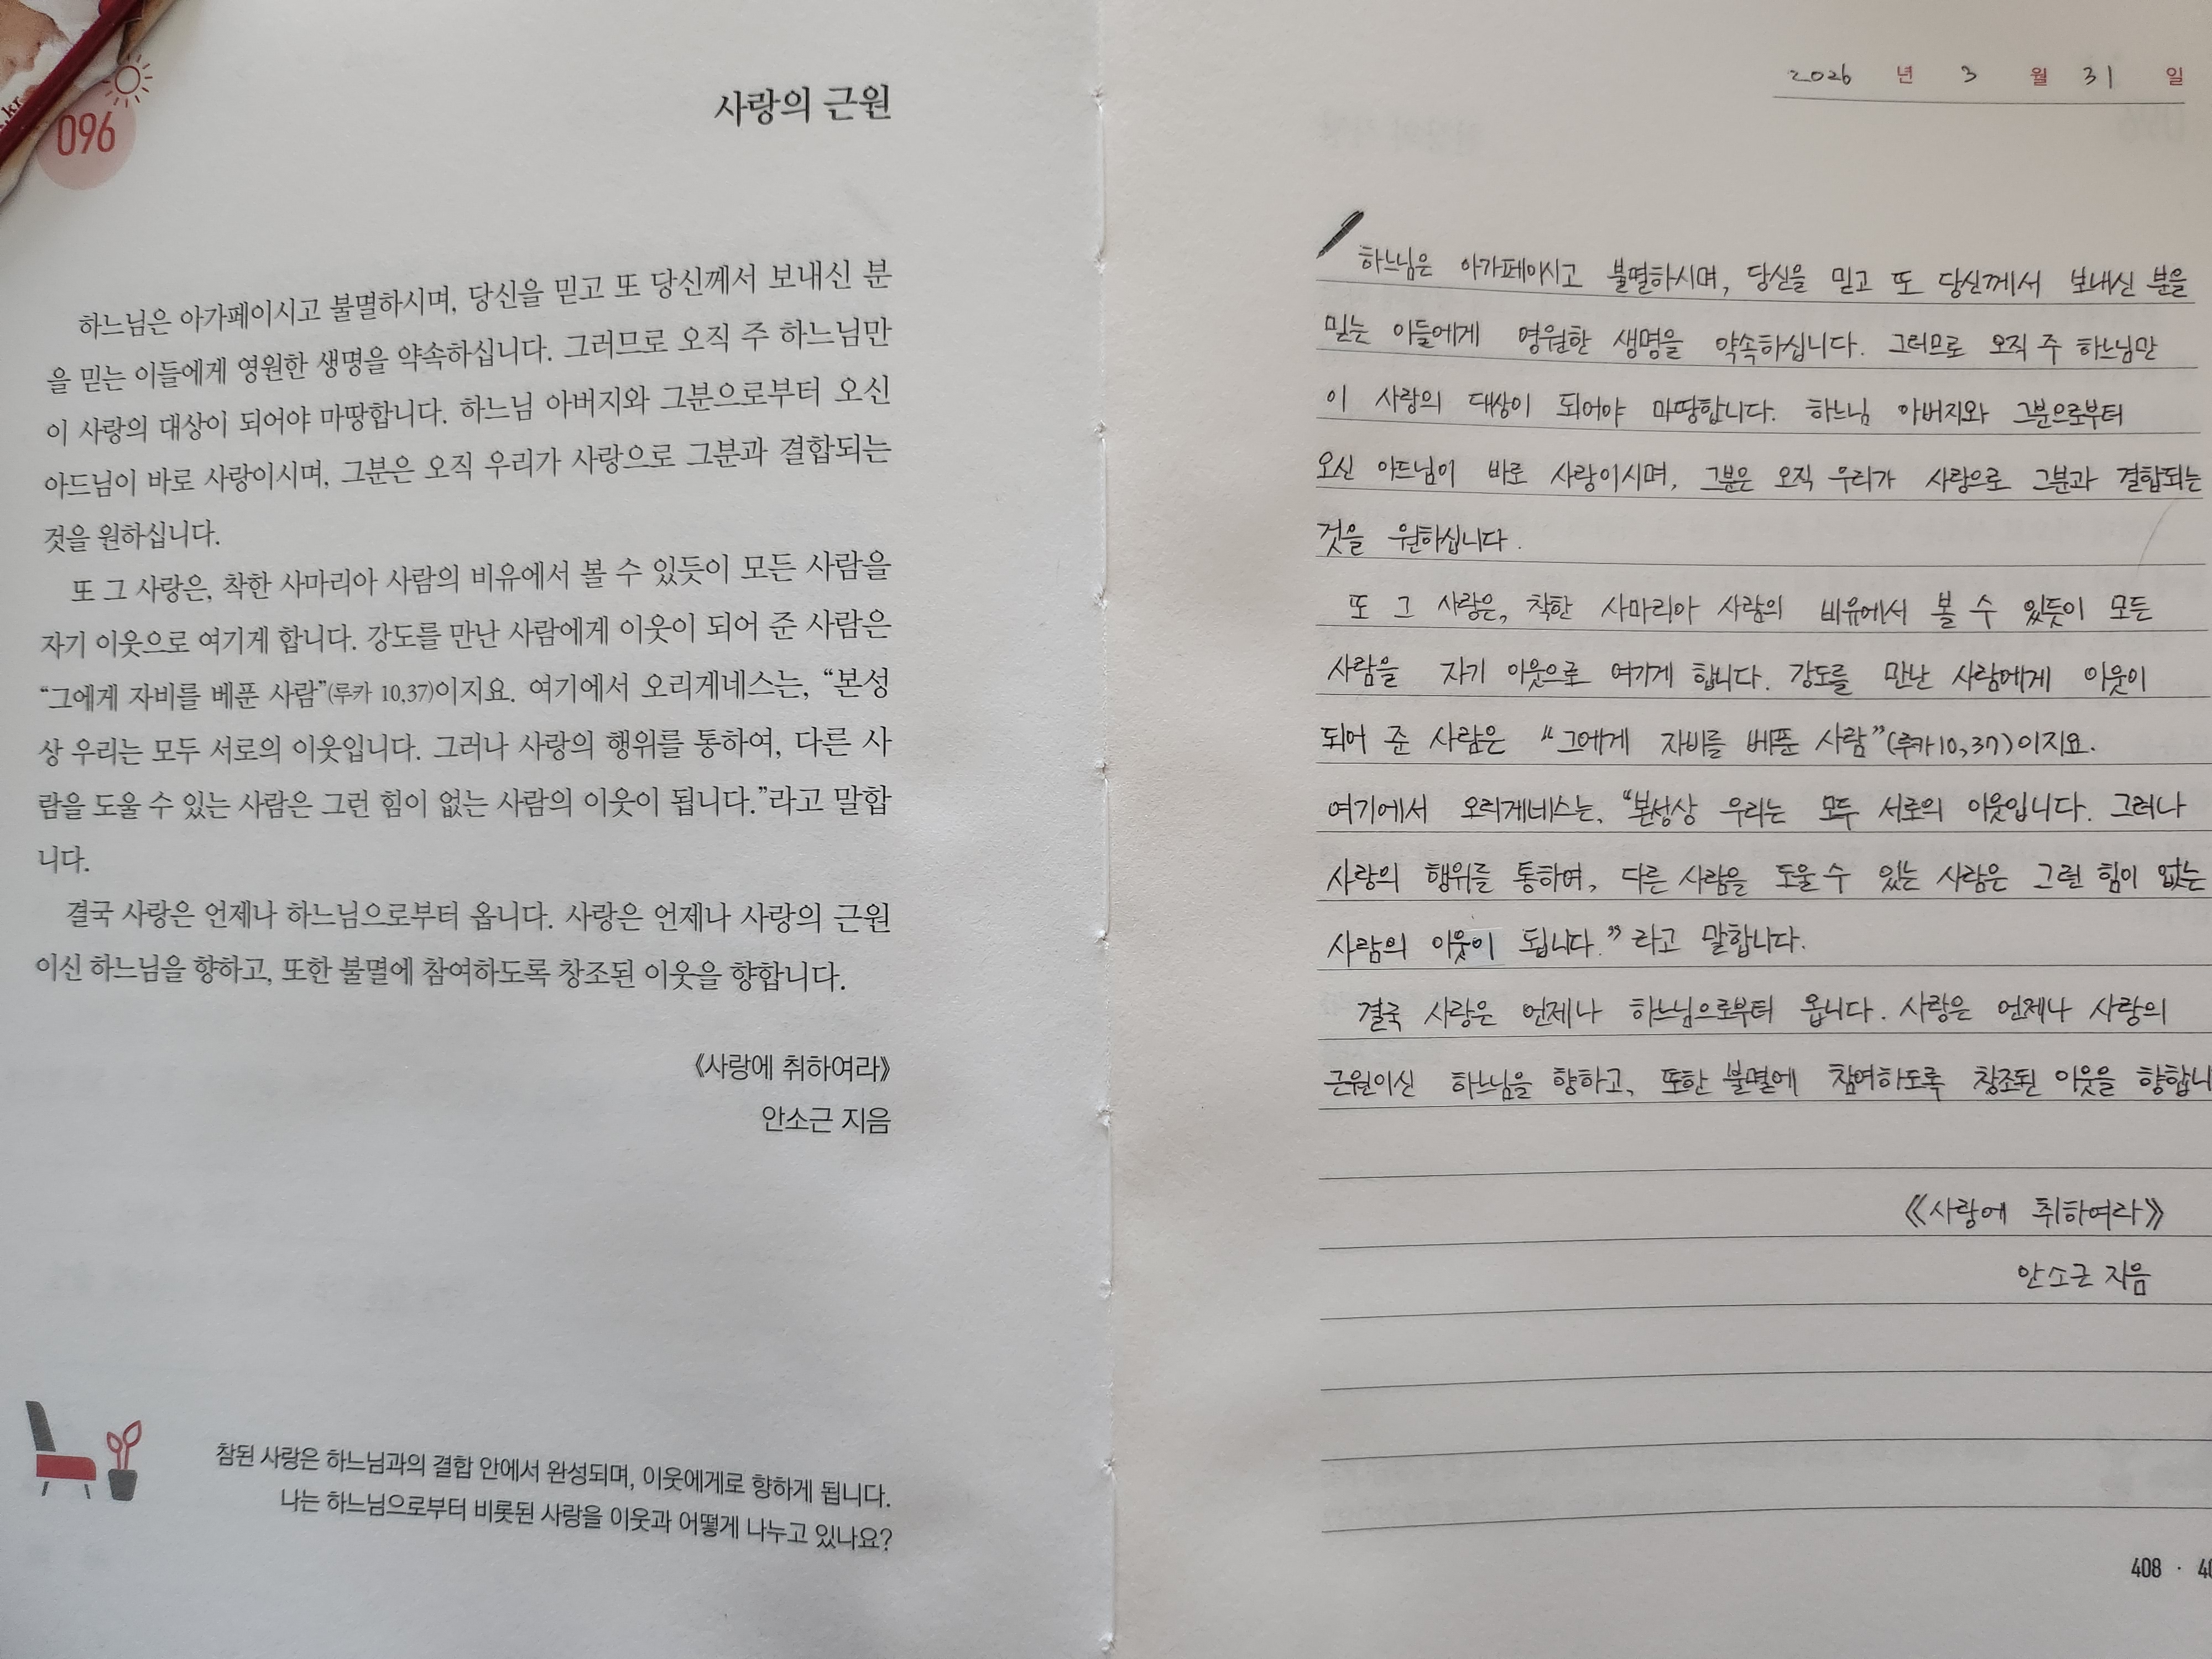 .kr
096
사랑의 근원
하느님은 아가페이시고 불멸하시며, 당신을 믿고 또 당신께서 보내신 분
을 믿는 이들에게 영원한 생명을 약속하십니다. 그러므로 오직 주 하느님만
이 사랑의 대상이 되어야 마땅합니다. 하느님 아버지와 그분으로부터 오신
아드님이 바로 사랑이시며, 그분은 오직 우리가 사랑으로 그분과 결합되는
것을 원하십니다.
또 그 사랑은, 착한 사마리아 사람의 비유에서 볼 수 있듯이 모든 사람을
자기 이웃으로 여기게 합니다. 강도를 만난 사람에게 이웃이 되어 준 사람은
“그에게 자비를 베푼 사람”(루카 10,37)이지요. 여기에서 오리게네스는, “본성
상 우리는 모두 서로의 이웃입니다. 그러나 사랑의 행위를 통하여, 다른 사
람을 도울 수 있는 사람은 그런 힘이 없는 사람의 이웃이 됩니다.”라고 말합
니다.
결국 사랑은 언제나 하느님으로부터 옵니다. 사랑은 언제나 사랑의 근원
이신 하느님을 향하고, 또한 불멸에 참여하도록 창조된 이웃을 향합니다.
《사랑에 취하여라》
안소근 지음
참된 사랑은 하느님과의 결합 안에서 완성되며, 이웃에게로 향하게 됩니다.
나는 하느님으로부터 비롯된 사랑을 이웃과 어떻게 나누고 있나요?
2026 년 3 월 31 일
하느님은 아가페이시고 불멸하시며, 당신을 믿고 또 당신께서 보내신 분을
믿는 이들에게 영원한 생명을 약속하십니다. 그러므로 오직 주 하느님만
이 사랑의 대상이 되어야 마땅합니다. 하느님 아버지와 그분으로부터
오신 아드님이 바로 사랑이시며, 그분은 오직 우리가 사랑으로 그분과 결합되는
것을 원하십니다.
또 그 사랑은, 착한 사마리아 사람의 비유에서 볼 수 있듯이 모든
사람을 자기 이웃으로 여기게 합니다. 강도를 만난 사람에게 이웃이
되어 준 사람은 “그에게 자비를 베푼 사람”(루카10,37)이지요.
여기에서 오리게네스는, “본성상 우리는 모두 서로의 이웃입니다. 그러나
사랑의 행위를 통하여, 다른 사람을 도울 수 있는 사람은 그런 힘이 없는
사람의 이웃이 됩니다.” 라고 말합니다.
결국 사랑은 언제나 하느님으로부터 옵니다. 사랑은 언제나 사랑의
근원이신 하느님을 향하고, 또한 불멸에 참여하도록 창조된 이웃을 향합니
《사랑에 취하여라》
안소근 지음
408 · 40